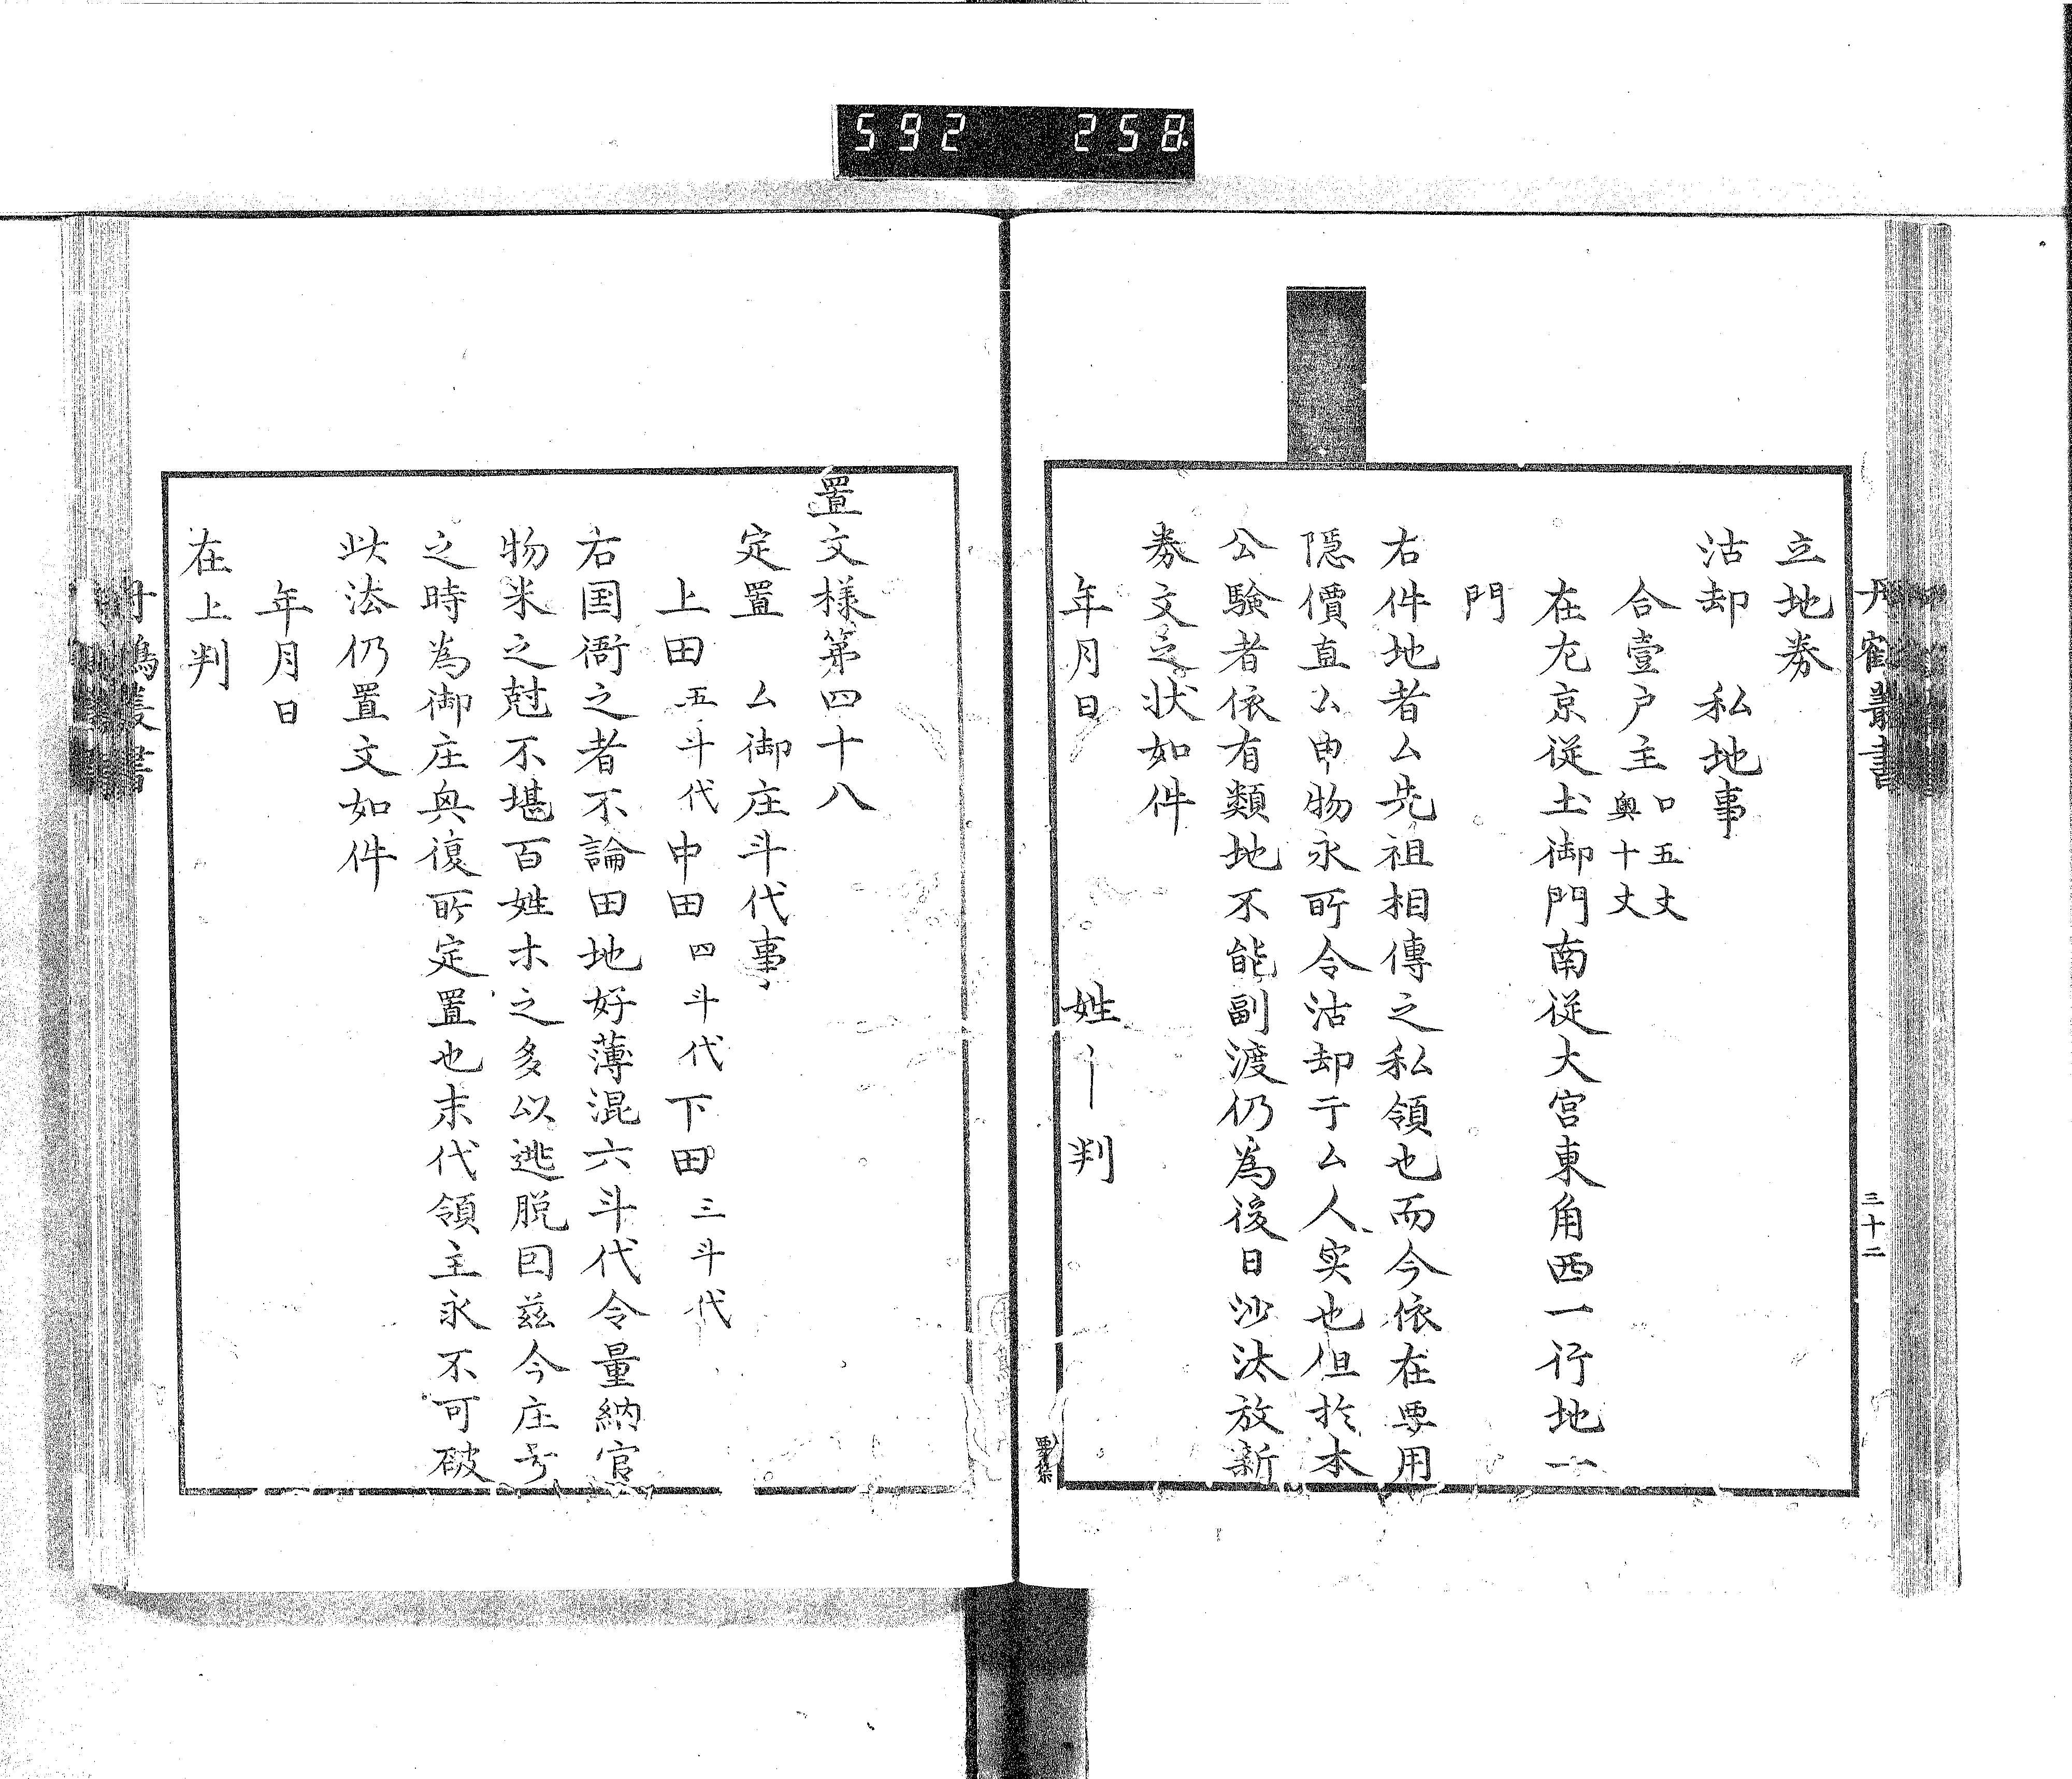 592 258
丹鶴叢書
三十二
立地券
沽却 私地事
合壹戸主 口五丈 奥十丈
在尢京従土御門南従大宮東角西一行地一
門
右件地者ム先祖相傳之私領也而今依在要用
隠價直ム申物永所令沽却亍ム人実也但於本
公驗者依有類地不能副渡仍為後日沙汰放新
券文之状如件
年月日 姓〡判
置文様第四十八
定置 ム御庄斗代事
上田 五斗代 中田 四斗代 下田 三斗代
右国衙之者不論田地好薄混六斗代令量納官
物米之尅不堪百姓木之多以逃脱因茲今庄号
之時為御庄興復所定置也末代領主永不可破
此法仍置文如件
年月日
在上判